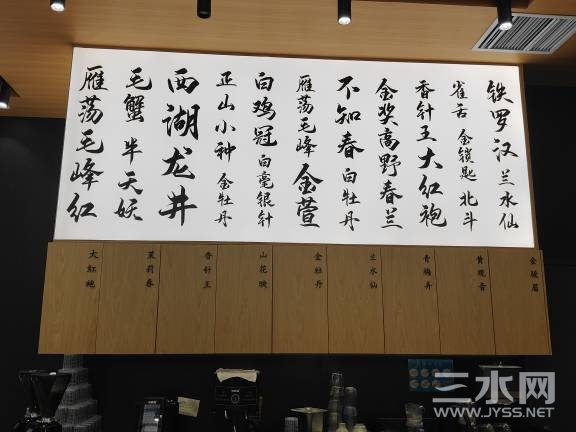 铁罗汉 兰水仙
雀舌 金锁匙 北斗
香针王 大红袍
金奖高野春兰
不知春 白牡丹
雁荡毛峰 金萱
白鸡冠 白毫银针
正山小种 金牡丹
西湖龙井
毛蟹 半天妖
雁荡毛峰红
金骏眉
黄观音
兰水仙
金牡丹
香针王
茉莉春
大红袍
三水网
WWW.JYSS.NET